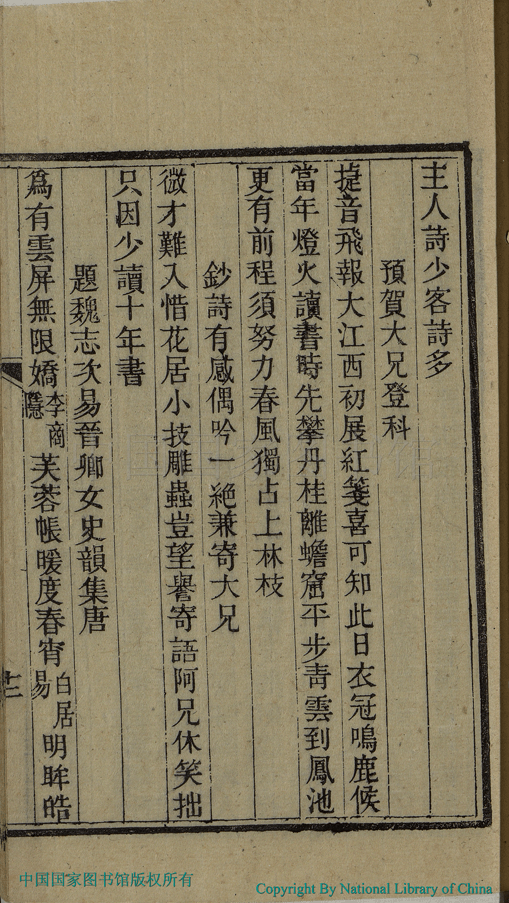 主人詩少客詩多
預賀大兄登科
捷音飛報大江西初展紅箋喜可知此日衣冠鳴鹿候
當年燈火讀書時先攀丹桂離蟾窟平步青雲到鳳池
更有前程須努力春風獨占上林枝
鈔詩有感偶吟一絕兼寄大兄
微才難入惜花居小技雕蟲豈望譽寄語阿兄休笑拙
只因少讀十年書
題魏志次易晉卿女史韻集唐
為有雲屏無限嬌李商隱芙蓉帳暖度春宵白居易明眸皓
十二
中国国家图书馆版权所有
Copyright By National Library of China